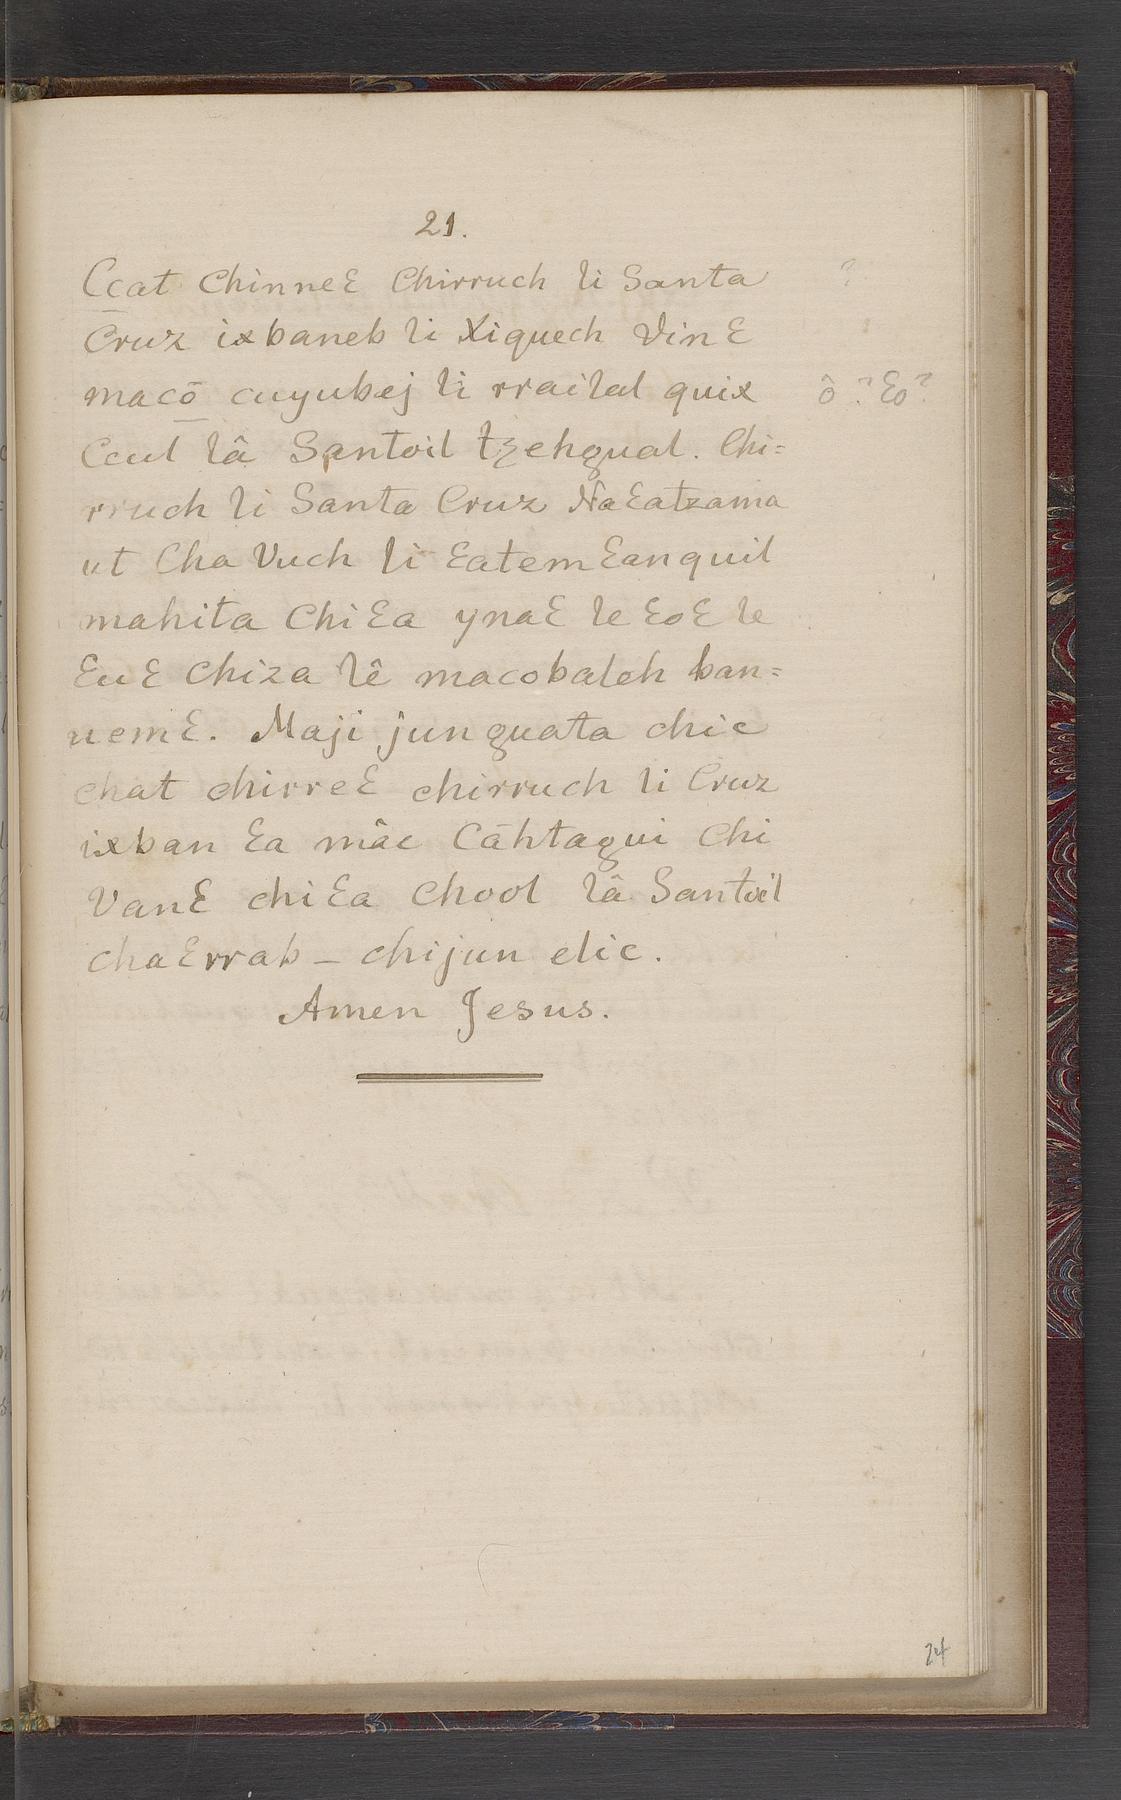 21.
Ccat Chinneε Chirruch li Santa ?
Cruz ixbaneb li Xiquech Vinε
macō cuyubej li rrailal quix ô? εo?
Ccul lâ Santoil tzehgual. Chi=
rruch li Santa Cruz Naεatzama
ut Cha Vuch li εatemεanquil
mahita Chiεa ynaε le εoε le
εuε Chiza lê macobaleh ban=
nemε. Maji junguata chic
chat chirreε chirruch li Cruz
ixban εa mâc Cāhtagui Chi
Vanε chiεa Chool lâ Santoil
chaεrrab – chijun elic.
Amen Jesus.
24